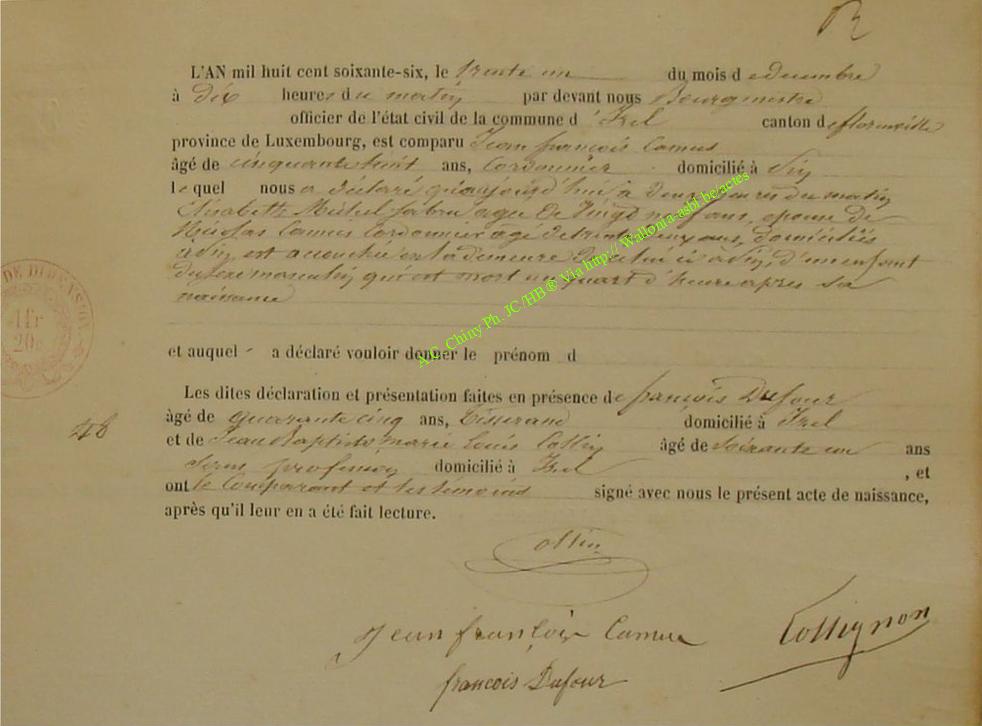 L'AN mil huit cent soixante-six, le trente un du mois d e decembre
à dix heures du matin par devant nous Bourgmestre
officier de l'état civil de la commune d 'Izel canton de florenville
province de Luxembourg, est comparu Jean françois Camus
âgé de cinquante huit ans, Cordonnier domicilié à
lequel nous a déclaré qu'aujourd'hui à deux heures du matin
Elisabeth Michel agée de Vingt neuf ans, epouse de
Nicolas Camus Cordonnier agé de trente ans, domiciliés
est accouchée en la demeure de celui ci d'un enfant
du sexe masculin, qui est mort un quart d'heure après sa
naissance
et auquel a déclaré vouloir donner le prénom d
Les dites déclaration et présentation faites en présence de françois Dufour
âgé de quarante cinq ans, tisserand domicilié à Izel
et de Jean Baptiste marie louis Collin âgé de soixante un ans
sans profession domicilié à Izel , et
ont le Comparant et les témoins signé avec nous le présent acte de naissance,
après qu'il leur en a été fait lecture.
48
1 fr
20c
A.C. Chiny Ph. JC /HB ® Via http:// Wallonia-asbl.be/actes
Collin
Jean françois Camus
Collignon
francois Dufour